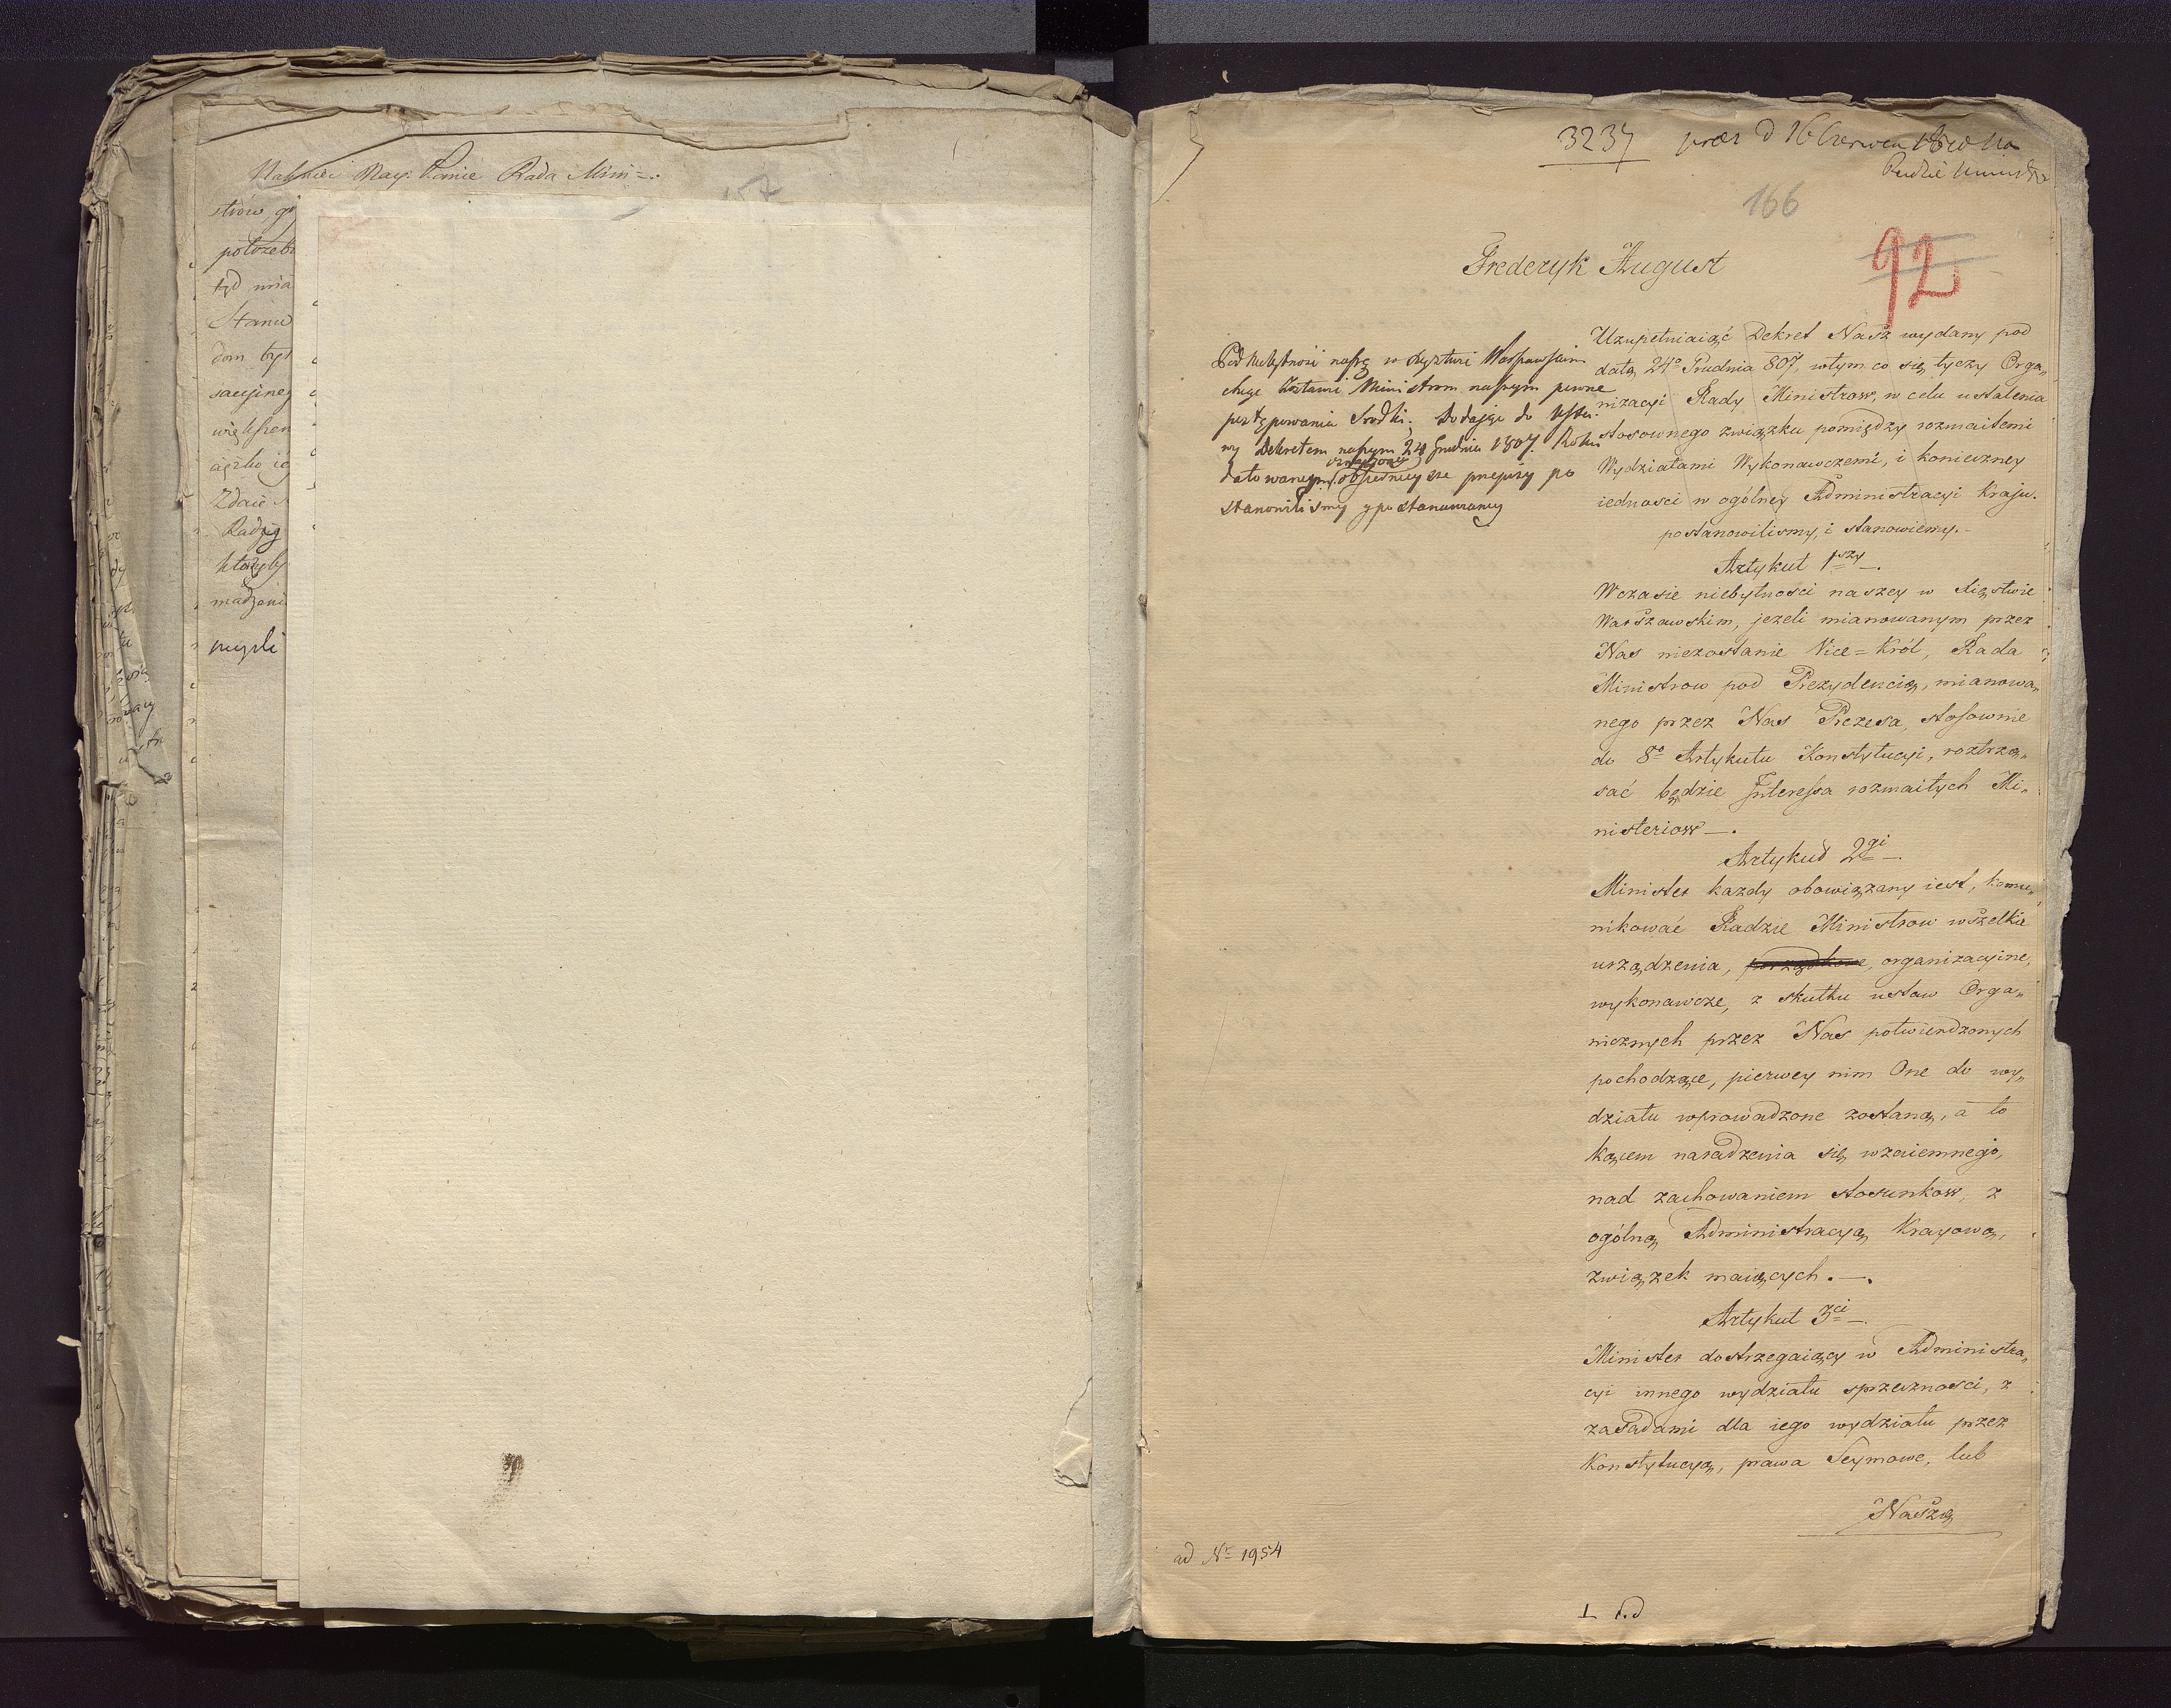 Rada Mini=
strów,
potrzeb
tęd mia
Stanu
dom był
sacyjney
większen
Zdaie
Radzę
któryby
madzeni
myśli
3237 prez d 16 Czerwca 1810 na
Radzie
166
92
Frederyk August
Pod niebytność naszą w Xięztwie Warszawskim
chcąc Ministrom naszym pewne
postępowania środki, Dodając do
wy Dekretem naszym 24 Grudnia 1807. Roku
datowanym, obszernieysze przepisy po
stanowiliśmy y postanawiamy
Uzupełniaiąć Dekret Nasz wydany pod
datą 24º Grudnia 807, wtym co się tyczy Orga„
nizacyi Rady Ministrow, w celu ustalenia
stosownego związku pomiędzy rozmaitemi
Wydziałami Wykonawczemi, i konieczney
iedności w ogólney Administracyi Kraju.
postanowilismy, i stanowiemy.-
Artykuł 1szy —.
Wczasie niebytnosci naszey w Xięstwie
Warszawskim, jezeli mianowanym przez
Nas niezostanie Vice=Król, Rada
Ministrow pod Prezydencią, mianowa„
nego przez Nas Prezesa, stosownie
do 8º Artykułu Konstytucyi, roztrzą„
sać będzie Interessa rozmaitych Mi„
nisteriow —.
Artykuł 2gi —.
Minister kazdy obowiązany iest, komu„
nikować Radzie Ministrow wszelkie
urządzenia, porządkowe, organizacyine,
wykonawcze, z skutku ustaw Orga„
nicznych przez Nas potwierdzonych
pochodzące, pierwey nim One do wy„
działu wprowadzone zostaną, a to
końcem naradzenia się wzaiemnego,
nad zachowaniem stosunkow, z
ogólną Administracyą Krayową,
związek maiących. —.
Artykuł 3ci —.
Minister dostrzegaiący w Administra„
cyi innego wydziału sprzeczności, z
zasadami dla iego wydziału przez
Konstytucyą, prawa Seymowe, lub
Naszą
ad Nº 1954